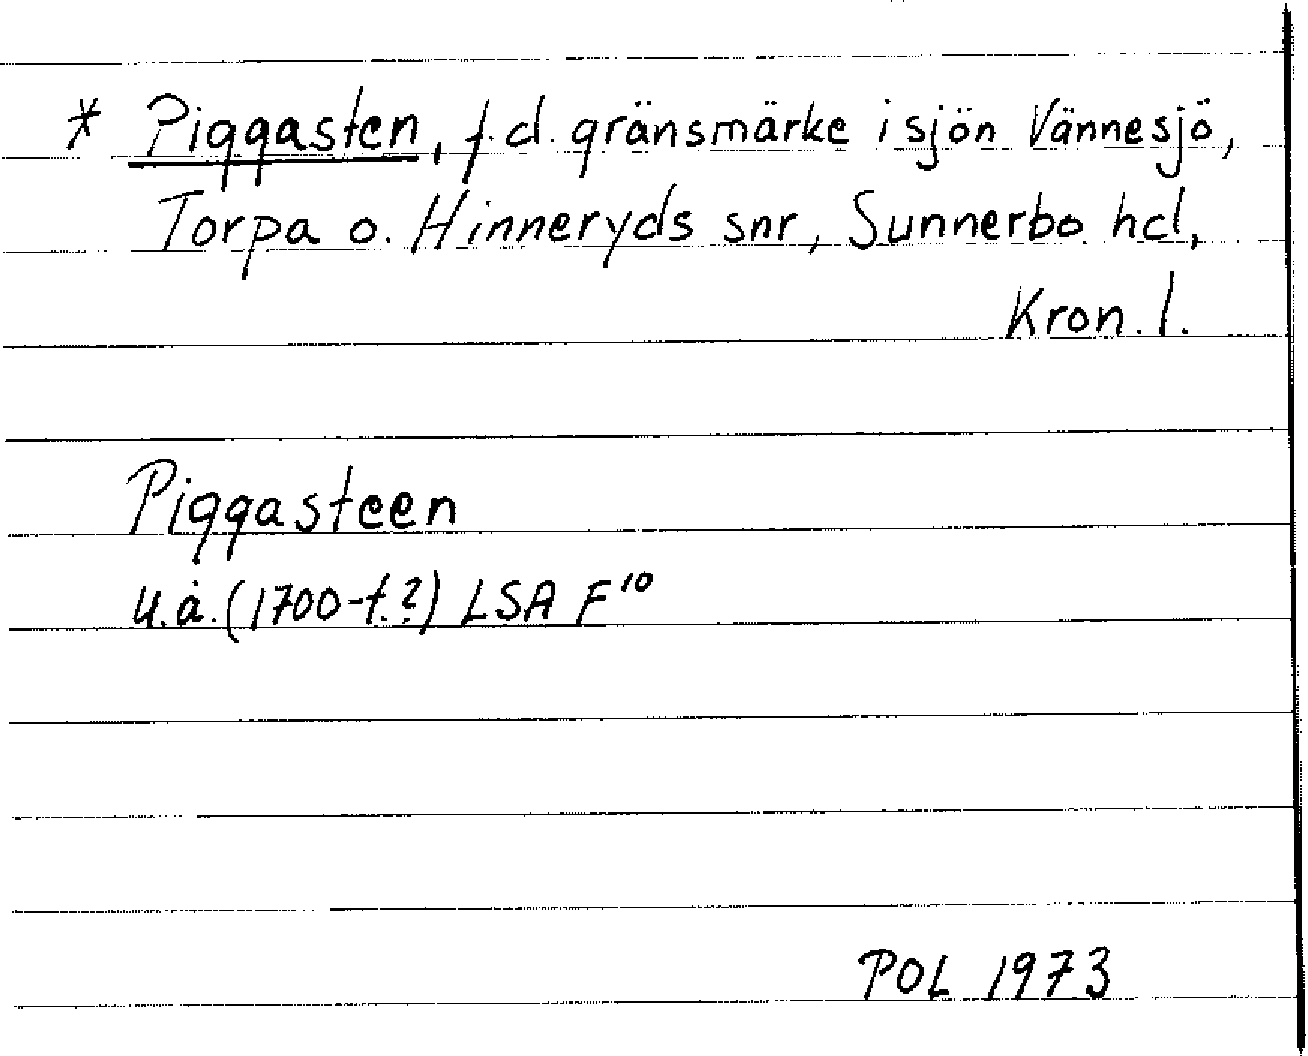 * Piggasten, f.d. gränsmärke i sjön Vännesjö,
Torpa o. Hinneryds snr, Sunnerbo hd,
Kron. l.
Piggasteen
u.å. (1700-t.?) LSA F¹⁰
POL 1973